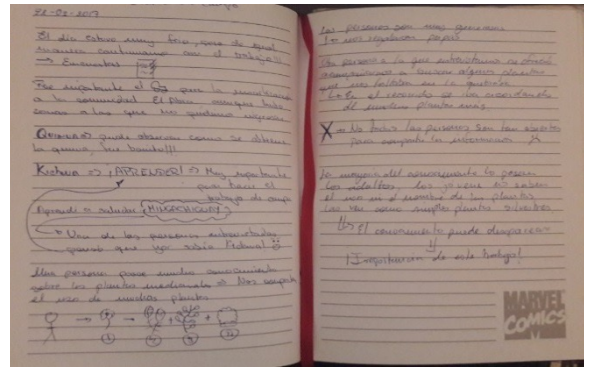 22-02-2017
El día estuvo muy frío, pero de igual
manera continuamos con el trabajo
→ Encuestas
Fue importante el para la
a la comunidad. El
como a las que no quisimos
Quinoa → pude observar como se obtiene
la quinoa, fue bonito!!!
Kichwa ⇒ ¡APRENDER! ⇒ Muy importante
para hacer el
trabajo de campo
Aprendí a saludar
→ Una de las personas entrevistadas
pensó que yo sabía Kichwa! ☺
Una persona posee mucho conocimiento
sobre las plantas medicinales ⇒ Nos compartió
el uso de muchas plantas
→ + +
Las personas son muy generosas
↳ nos regalaron papas
Una persona a la que entrevistamos se ofreció
acompañarnos a buscar algunas plantas
que nos faltaban en la
↳ En el recorrido se iba acordando
de muchas plantas más
X → No todas las personas son tan abiertas
para compartir la información
La mayoría del conocimiento lo poseen
los adultos, los jóvenes no saben
el uso ni el nombre de las plantas
las ven como simples plantas silvestres
↳ El conocimiento puede desaparecer
¡Importancia de este trabajo!
MARVEL
COMICS